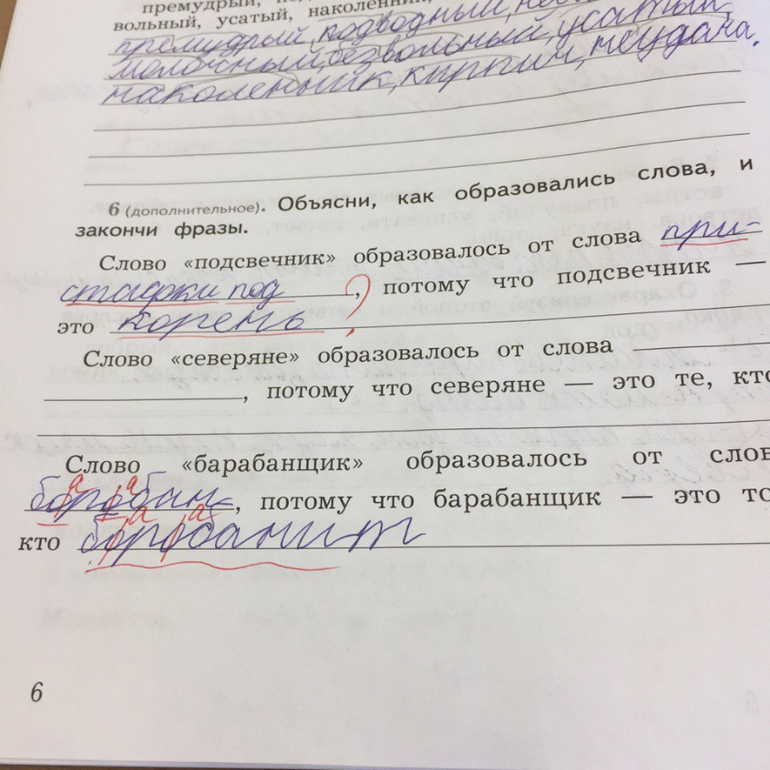 премудрый, по
вольный, усатый, наколенник,
премудрый, подводный, не
молочный, безвольный, усатый,
наколенник, кирпич, неудача.
6 (дополнительное). Объясни, как образовались слова, и
закончи фразы.
Слово «подсвечник» образовалось от слова при-
ставки под , потому что подсвечник —
это корень
?
Слово «северяне» образовалось от слова
, потому что северяне — это те, кто
Слово «барабанщик» образовалось от слов
боробан , потому что барабанщик — это то
а а
кто боробанит
а а
6